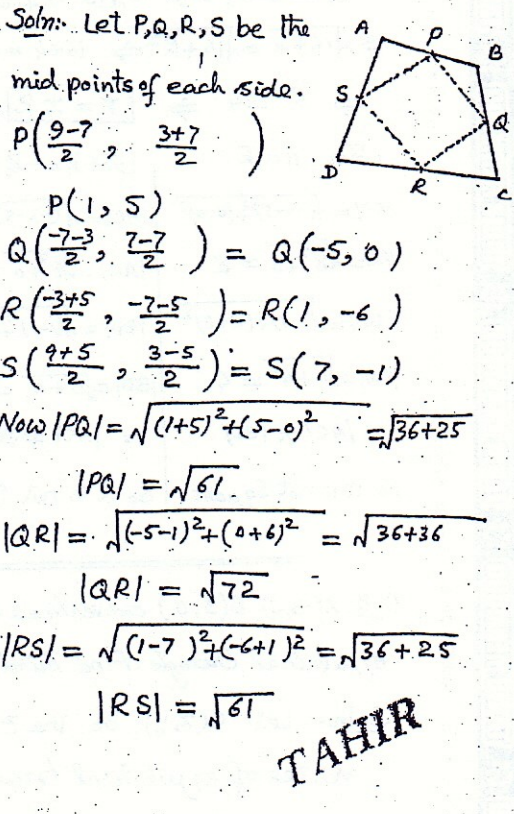 Soln:- Let P,Q,R,S be the
mid points of each side.
P(9-7/2 , 3+7/2)
P(1, 5)
Q(-7-3/2, 7-7/2) = Q(-5, 0)
R(-3+5/2, -7-5/2) = R(1, -6)
S(9+5/2, 3-5/2) = S(7, -1)
Now |PQ| = √(1+5)²+(5-0)² = √36+25
|PQ| = √61
|QR| = √(-5-1)²+(0+6)² = √36+36
|QR| = √72
|RS| = √(1-7)²+(-6+1)² = √36+25
|RS| = √61
TAHIR
A
P
B
S
Q
D
R
C